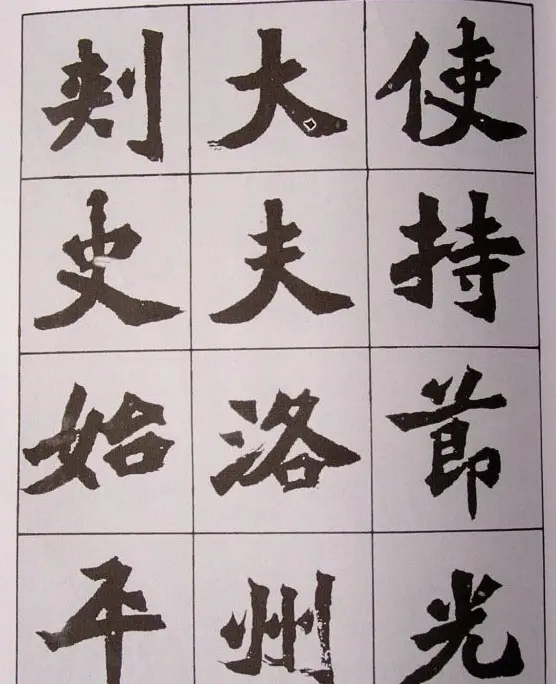 使持節光
大夫洛州
刺史始平